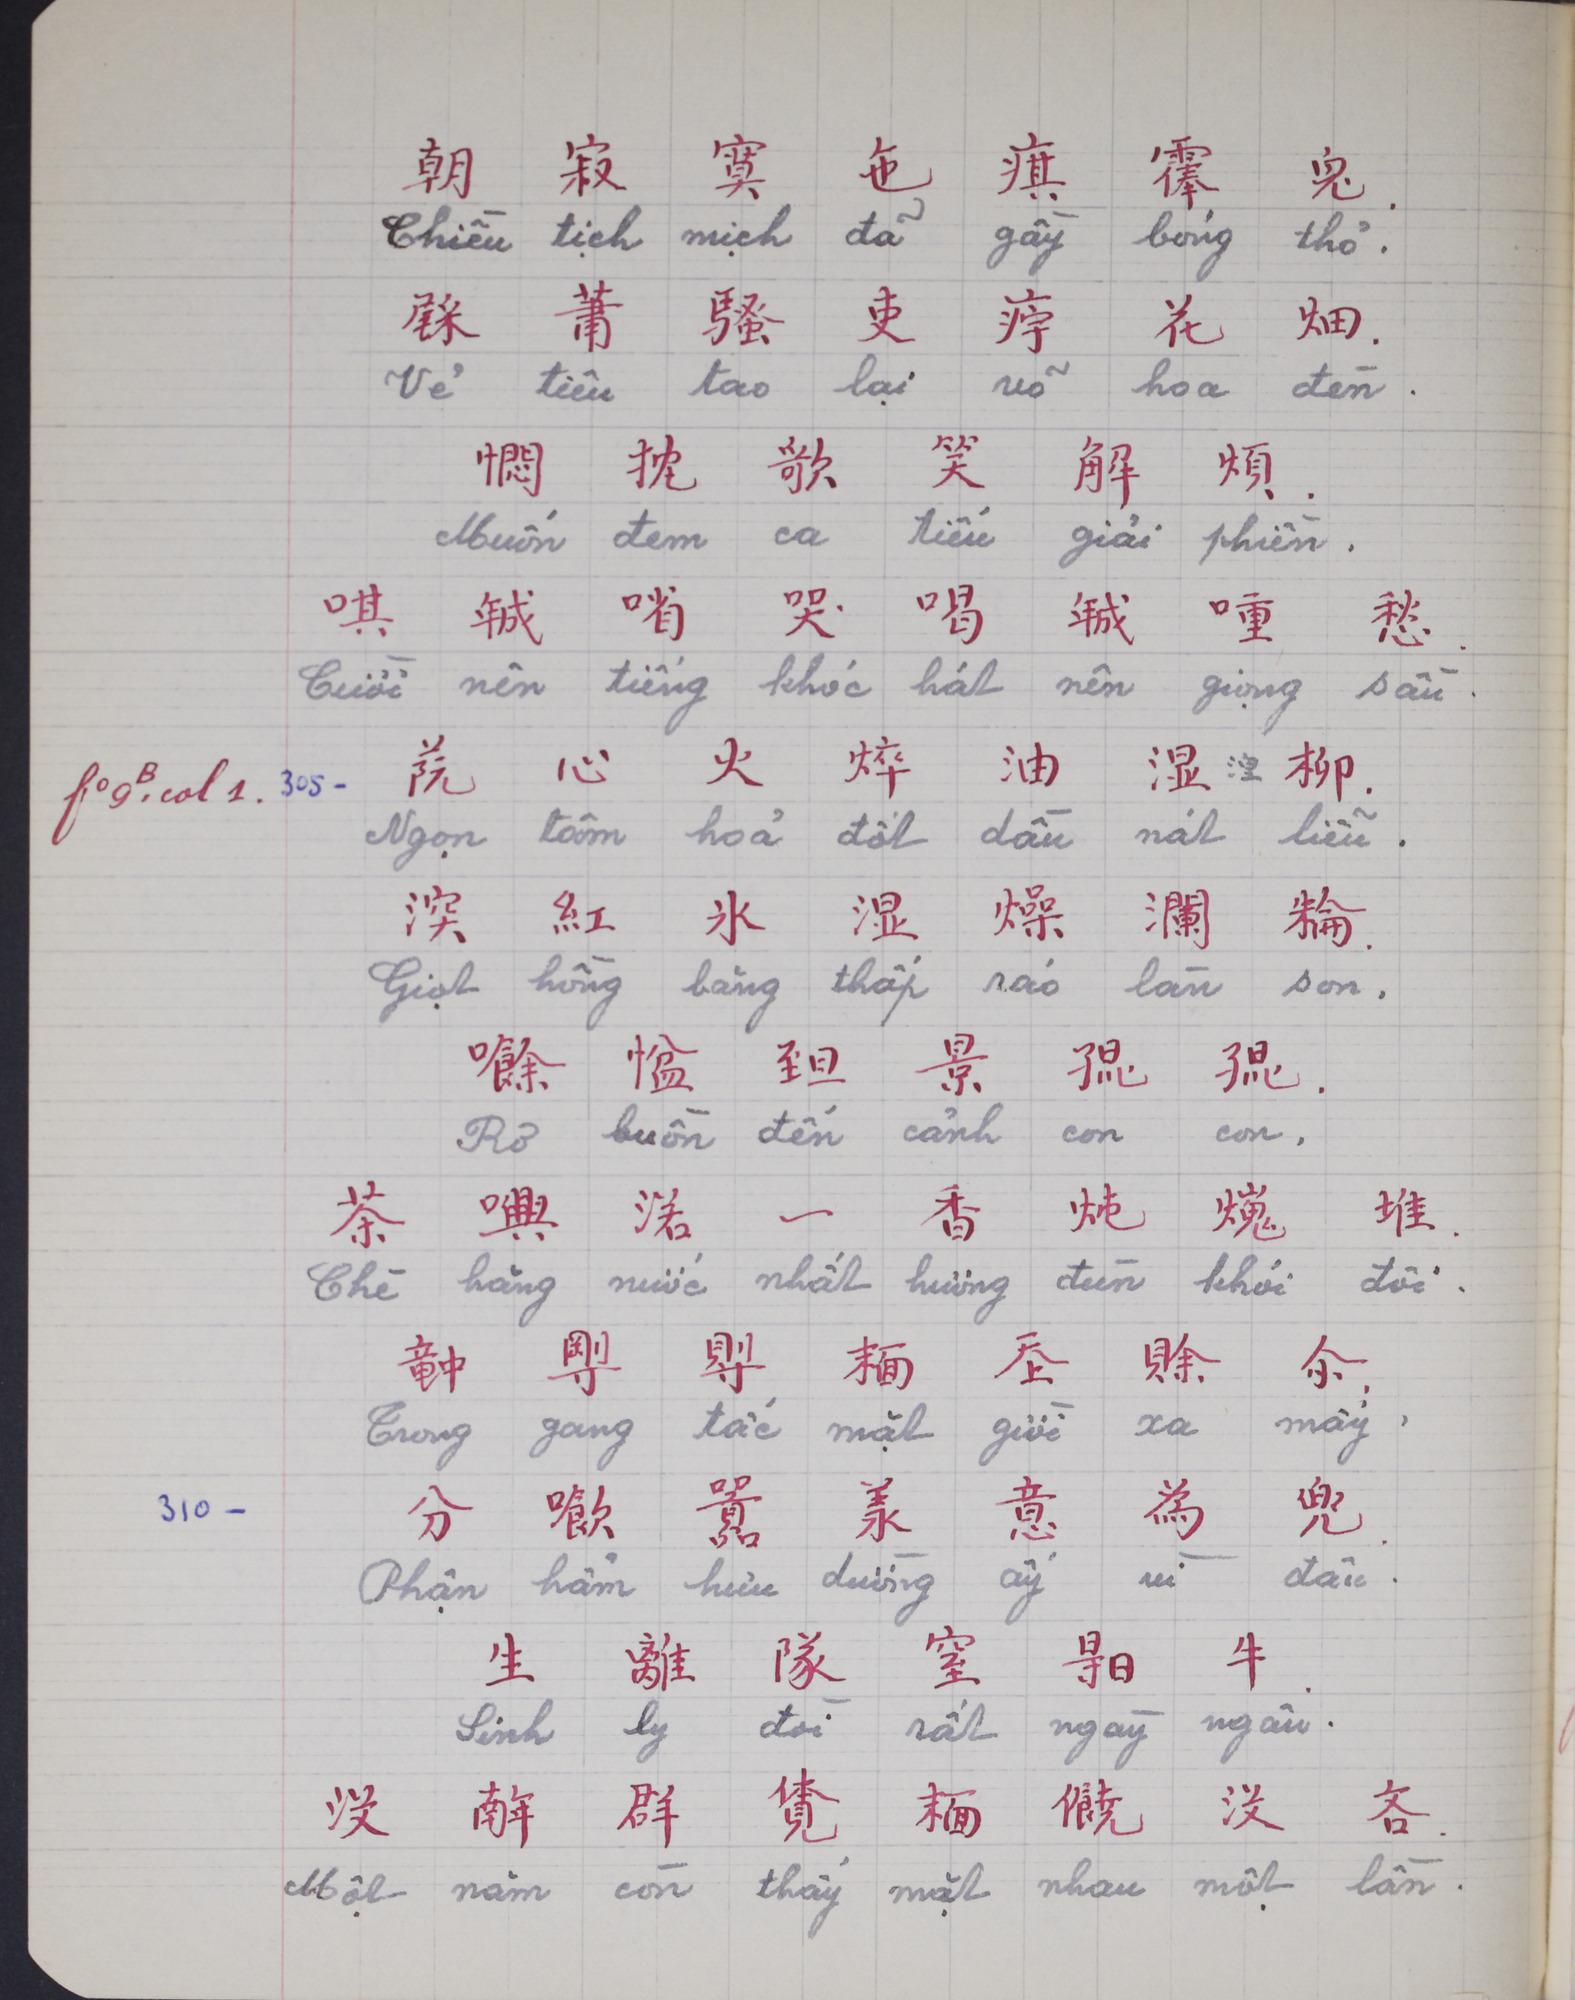 朝 寂 寞 㐌 𤷍 䨦 兔.
Chiều tịch mịch đã gầy bóng thỏ.
萧 騷 吏 花 畑.
Vẻ tiêu tao lại võ hoa đèn.
憫 抌 歌 笑 解 煩.
Muốn đem ca tiếu giải phiền.
唭 哨 哭 喝 喠 愁.
Cười nên tiếng khóc hát nên giọng sầu.
fº 9B. col 1. 305- 心 火 焠 油 湿 湼 柳.
Ngọn tâm hoả đốt dầu nát liễu.
湥 紅 氷 湿 燥 瀾 輪.
Giọt hồng băng thấp ráo làn son.
悶 𦤾 景 𡥵 𡥵.
Rỡ buồn đến cảnh con con.
茶 㗢 渃 一 香 炖 堆.
Chè hằng nước nhất hương đùn khói đôi.
𥪝 𩈘 𡗶 賒 尒.
Trong gang tấc mặt giời xa mấy,
310- 分 囂 羕 意 為 兜.
Phận hẩm hưu dường ấy vì đâu.
生 離 隊 窒 𣈜 牛.
Sinh ly đòi rất ngày ngâu.
没 𢆥 群 𧡊 𩈘 饒 没 吝.
Một năm còn thấy mặt nhau một lần.